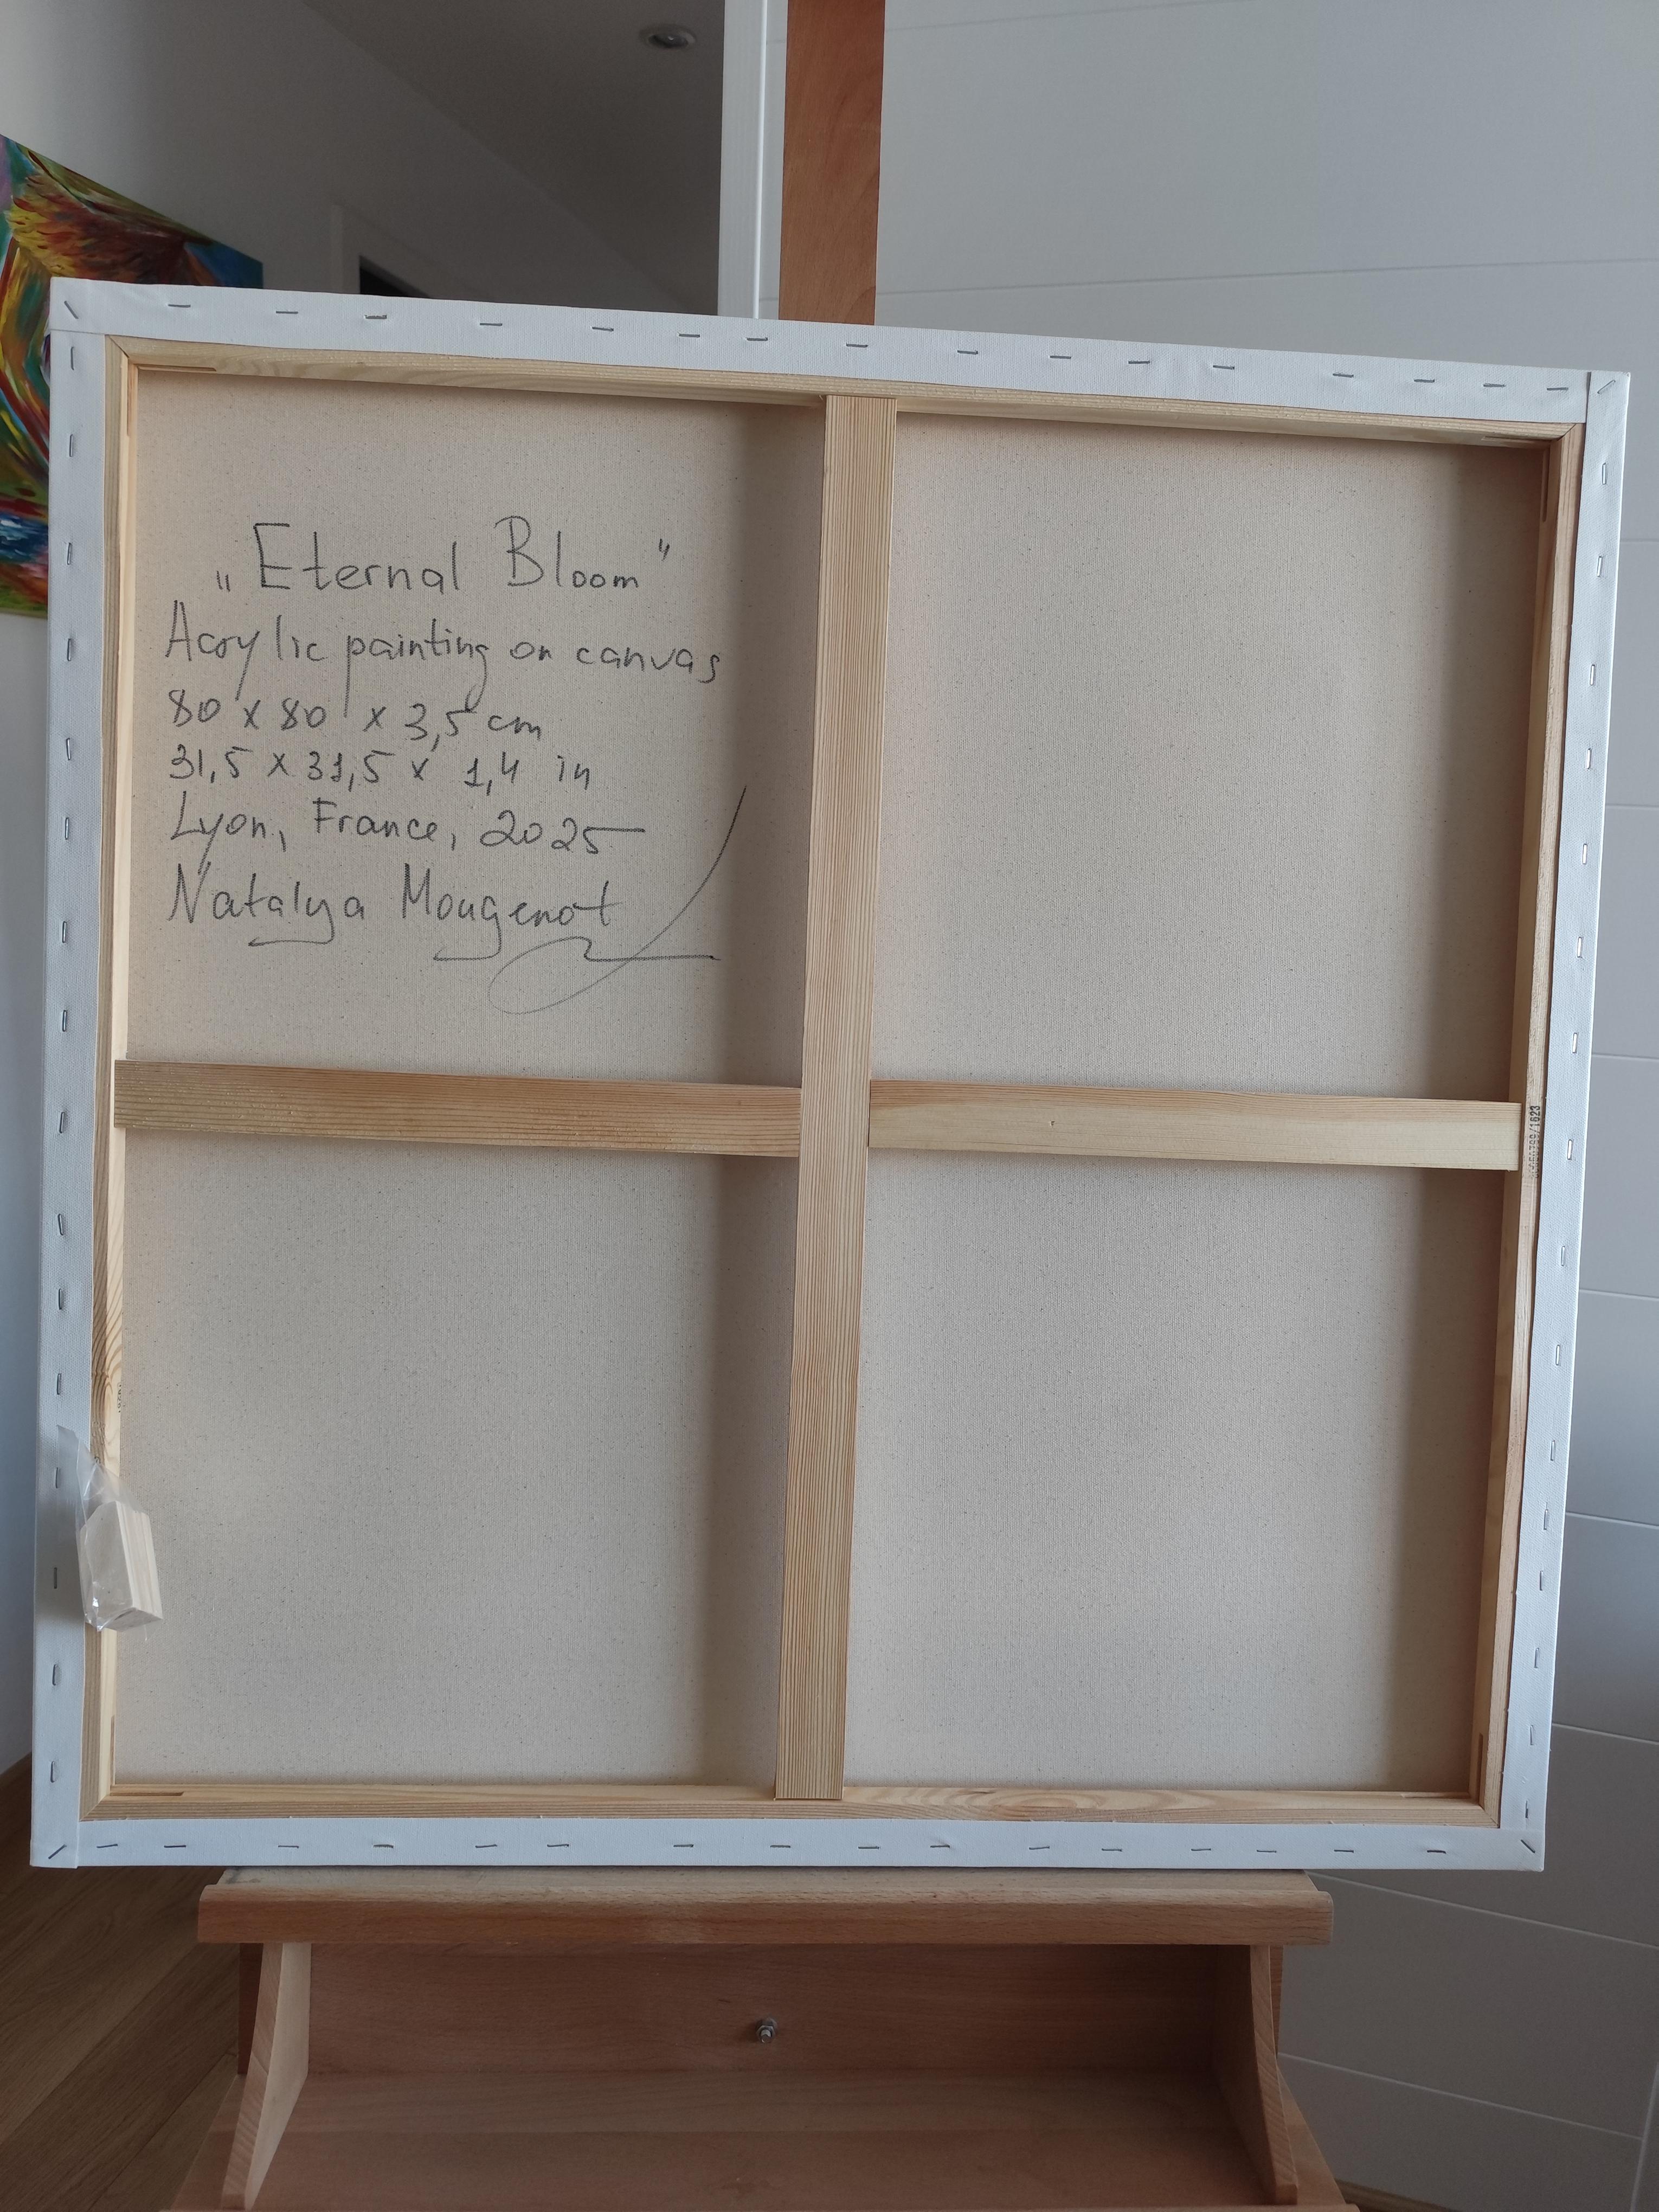 „Eternal Bloom"
Acrylic painting on canvas
80 x 80 x 3,5 cm
31,5 x 31,5 x 1,4 in
Lyon, France, 2025
Natalya Mougenot